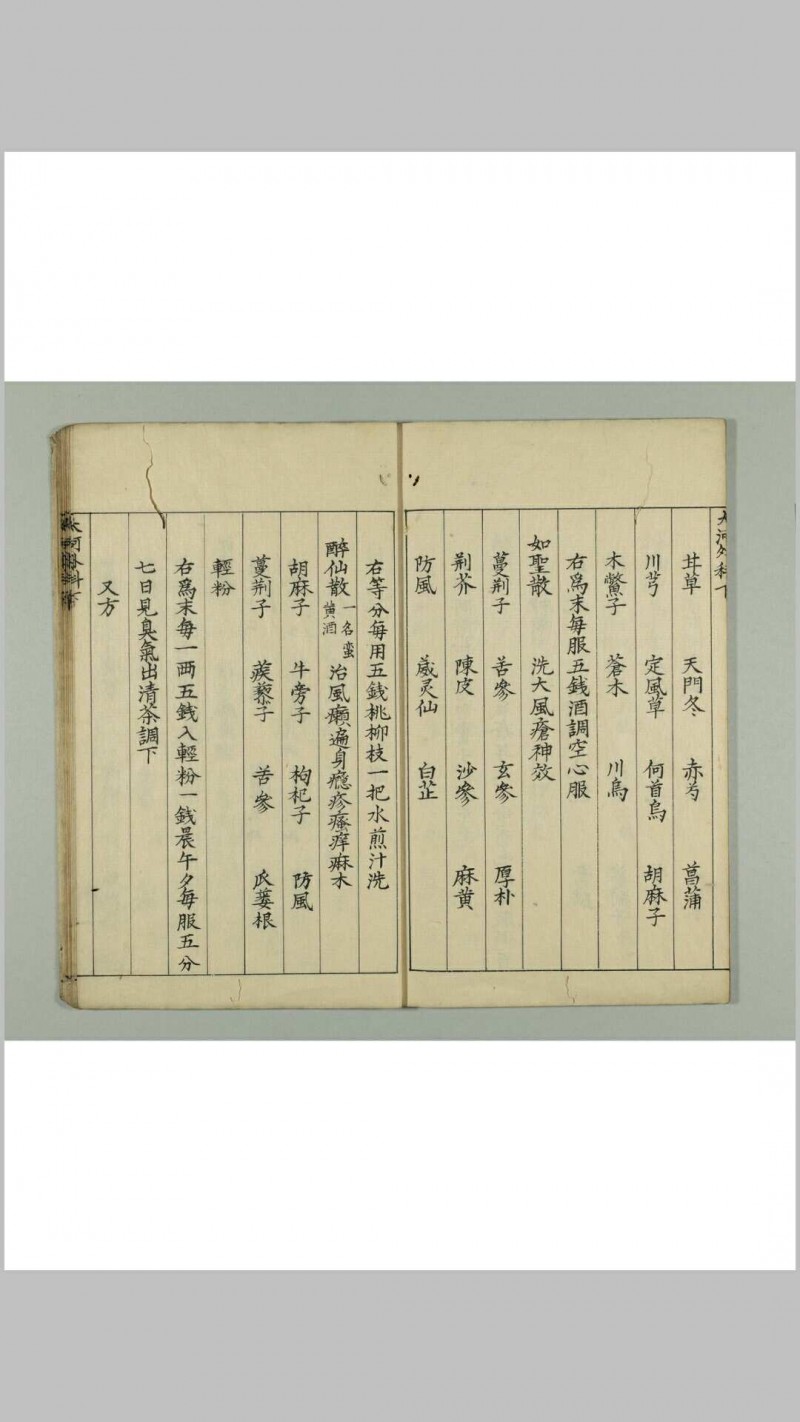 大河外科下
甘草 天門冬 赤芍 菖蒲
川芎 定風草 何首烏 胡麻子
木鱉子 蒼木 川烏
右爲末每服五銭酒調空心服
如聖散 洗大風瘡神效
蔓荆子 苦參 玄參 厚朴
荆芥 陳皮 沙參 麻黄
防風 葳灵仙 白芷
右等分每用五銭桃柳枝一把水煎汁洗
醉仙散一名蛮黄酒 治風癩遍身瘾疹瘙痒麻木
胡麻子 牛旁子 枸杞子 防風
蔓荆子 蒺藜子 苦參 瓜蔞根
輕粉
右爲末每一两五銭入輕粉一銭晨午夕每服五分
七日見臭氣出清茶調下
又方